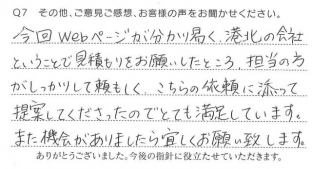 Q7 その他、ご意見ご感想、お客様の声をお聞かせください。
今回Webページが分かり易く、港北の会社
ということで見積もりをお願いしたところ、担当の方
がしっかりして頼もしく、こちらの依頼に添って
提案してくださったのでとても満足しています。
また機会がありましたら宜しくお願い致します。
ありがとうございました。今後の指針に役立たせていただきます。